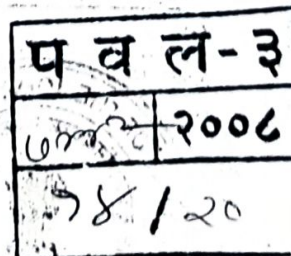 प व ल - ३
२००८
१४ / २०